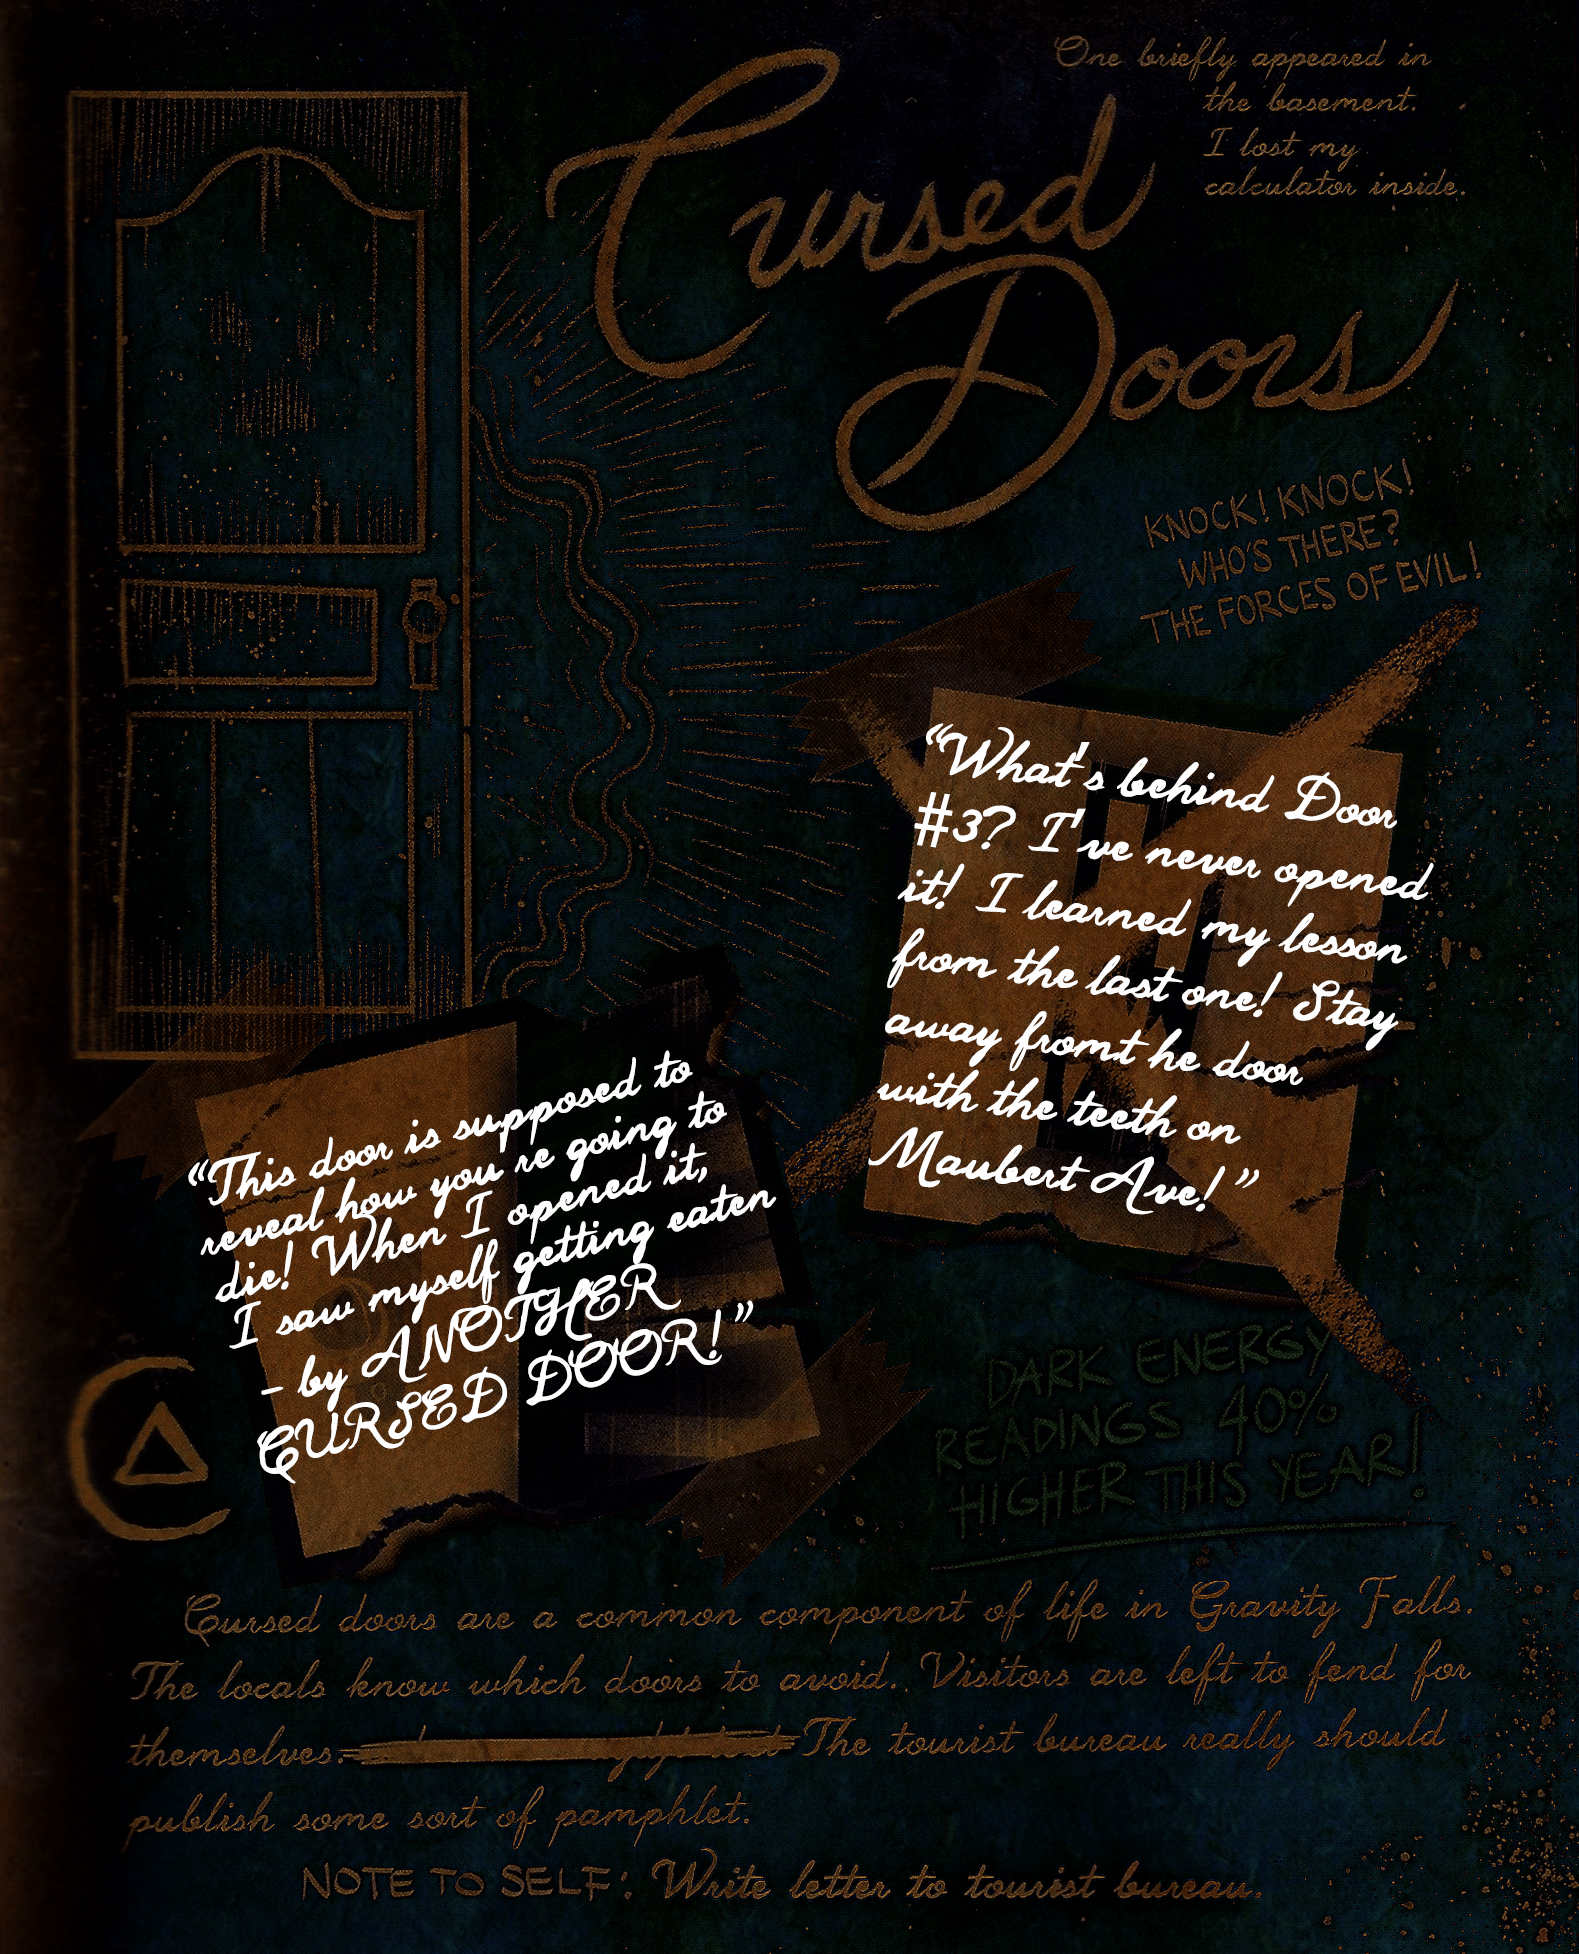 One briefly appeared in
the basement.
I lost my
calculator inside.
Cursed
Doors
KNOCK! KNOCK!
WHO'S THERE?
THE FORCES OF EVIL!
"What's behind Door
#3? I've never opened
it! I learned my lesson
from the last one! Stay
away fromt he door
with the teeth on
Maubert Ave!"
"This door is supposed to
reveal how you're going to
die! When I opened it,
I saw myself getting eaten
- by ANOTHER
CURSED DOOR!"
DARK ENERGY
READINGS 40%
HIGHER THIS YEAR!
Cursed doors are a common component of life in Gravity Falls.
The locals know which doors to avoid. Visitors are left to fend for
themselves. The tourist bureau really should
publish some sort of pamphlet.
NOTE TO SELF: Write letter to tourist bureau.